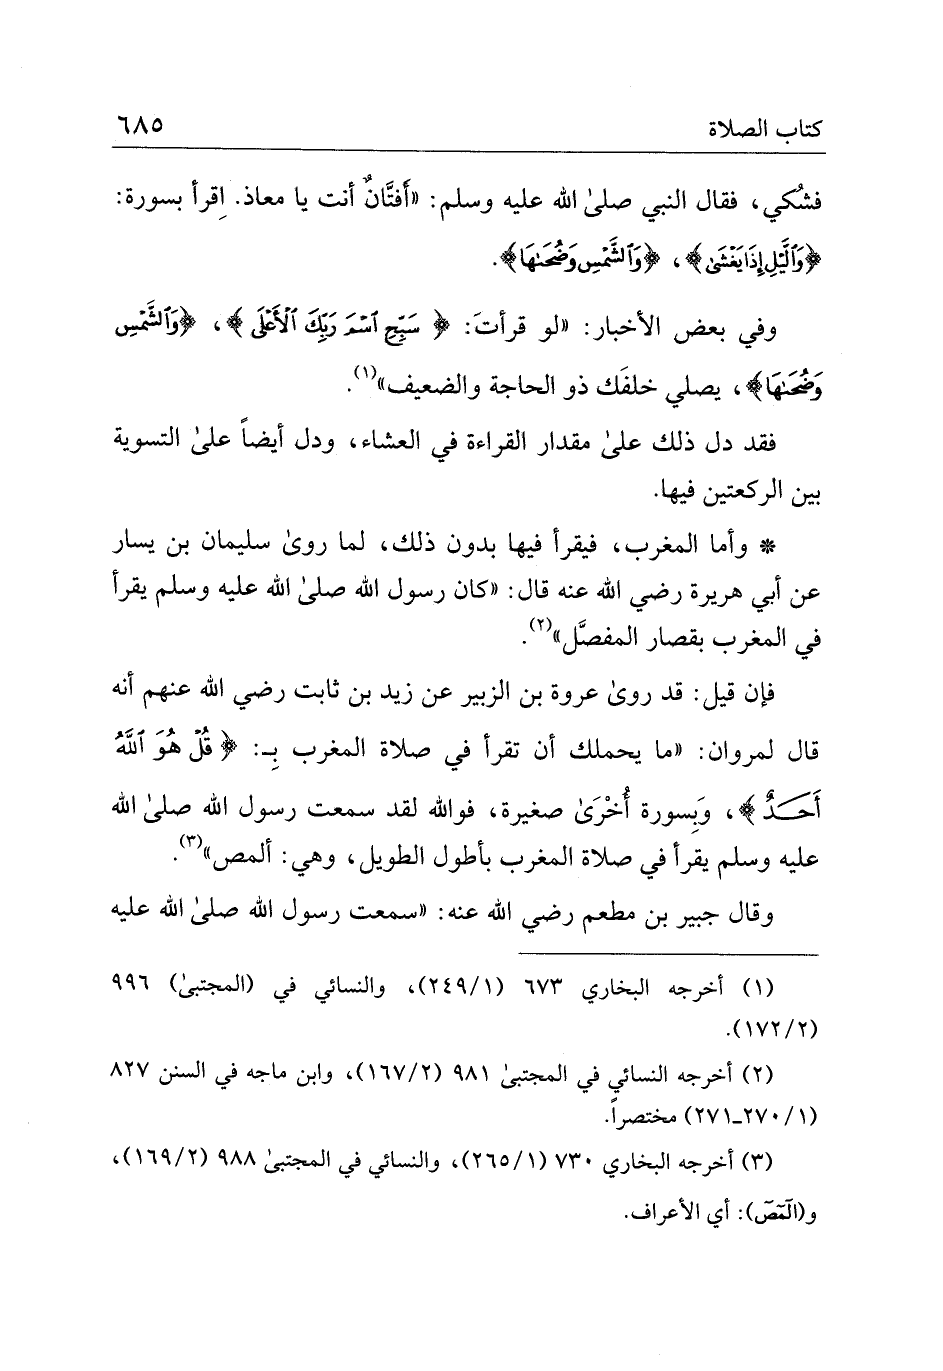 كتاب الصلاة ٦٨٥
فشُكي، فقال النبي صلىٰ الله عليه وسلم: «أَفتَّانٌ أنت يا معاذ. اِقرأ بسورة:
﴿وَٱلَّيۡلِ إِذَا يَغۡشَىٰ﴾، ﴿وَٱلشَّمۡسِ وَضُحَىٰهَا﴾.
وفي بعض الأخبار: «لو قرأتَ: ﴿سَبِّحِ ٱسۡمَ رَبِّكَ ٱلۡأَعۡلَى﴾، ﴿وَٱلشَّمۡسِ
وَضُحَىٰهَا﴾، يصلي خلفَك ذو الحاجة والضعيف»(١).
فقد دل ذلك علىٰ مقدار القراءة في العشاء، ودل أيضاً علىٰ التسوية
بين الركعتين فيها.
* وأما المغرب، فيقرأ فيها بدون ذلك، لما روىٰ سليمان بن يسار
عن أبي هريرة رضي الله عنه قال: «كان رسول الله صلىٰ الله عليه وسلم يقرأ
في المغرب بقصار المفصَّل»(٢).
فإن قيل: قد روىٰ عروة بن الزبير عن زيد بن ثابت رضي الله عنهم أنه
قال لمروان: «ما يحملك أن تقرأ في صلاة المغرب بِـ: ﴿قُلۡ هُوَ ٱللَّهُ
أَحَدٌ﴾، وَبِسورة أُخْرَىٰ صغيرة، فوالله لقد سمعت رسول الله صلىٰ الله
عليه وسلم يقرأ في صلاة المغرب بأطول الطويل، وهي: ألمص»(٣).
وقال جبير بن مطعم رضي الله عنه: «سمعت رسول الله صلىٰ الله عليه
(١) أخرجه البخاري ٦٧٣ (٢٤٩/١)، والنسائي في (المجتبىٰ) ٩٩٦
(١٧٢/٢).
(٢) أخرجه النسائي في المجتبىٰ ٩٨١ (١٦٧/٢)، وابن ماجه في السنن ٨٢٧
(٢٧٠/١ـ٢٧١) مختصراً.
(٣) أخرجه البخاري ٧٣٠ (٢٦٥/١)، والنسائي في المجتبىٰ ٩٨٨ (١٦٩/٢)،
و(الٓمٓصٓ): أي الأعراف.